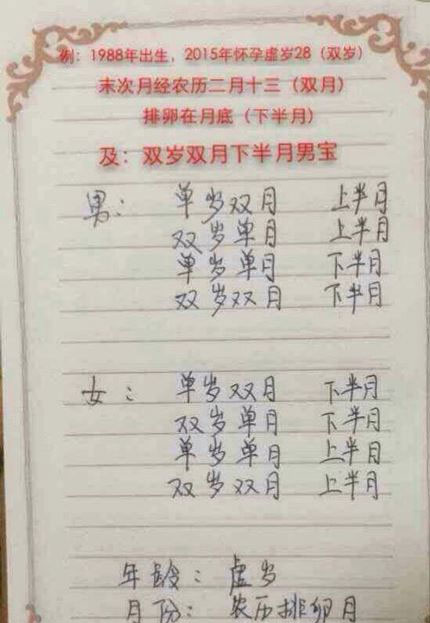 例：1988年出生，2015年怀孕虚岁28（双岁）
末次月经农历二月十三（双月）
排卵在月底（下半月）
及：双岁双月下半月男宝
男： 单岁双月 上半月
双岁单月 上半月
单岁单月 下半月
双岁双月 下半月
女： 单岁双月 下半月
双岁单月 下半月
单岁单月 上半月
双岁双月 上半月
年龄：虚岁
月份：农历排卵月